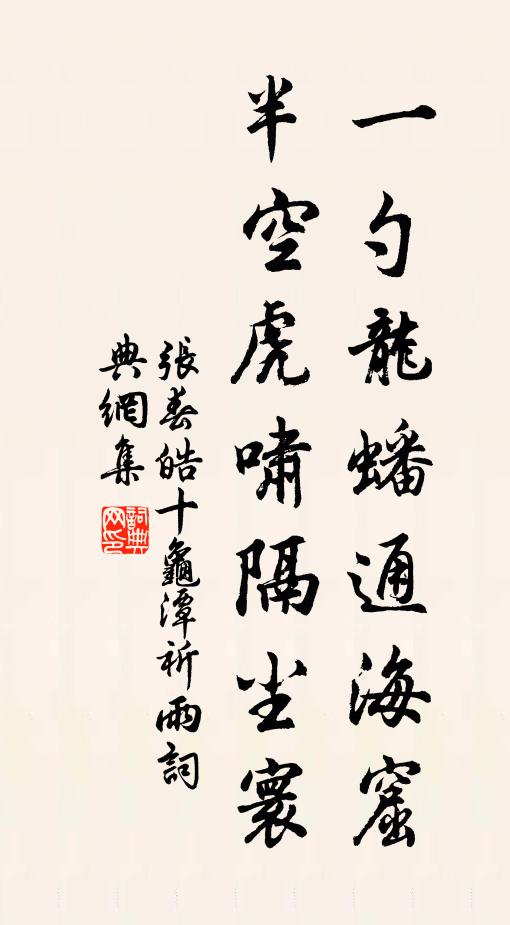 一勺龍蟠通海窟
半空虎嘯隔尘寰
張春皓十龜潭祈雨詞
典網集
詞典网印